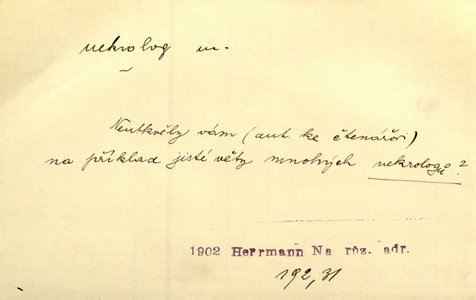 nekrolog m.
Neutkvěly vám (aut. ke čtenářovi)
na příklad jisté věty mnohých nekrologů?
1902 Herrmann Na růz. adr.
192,31